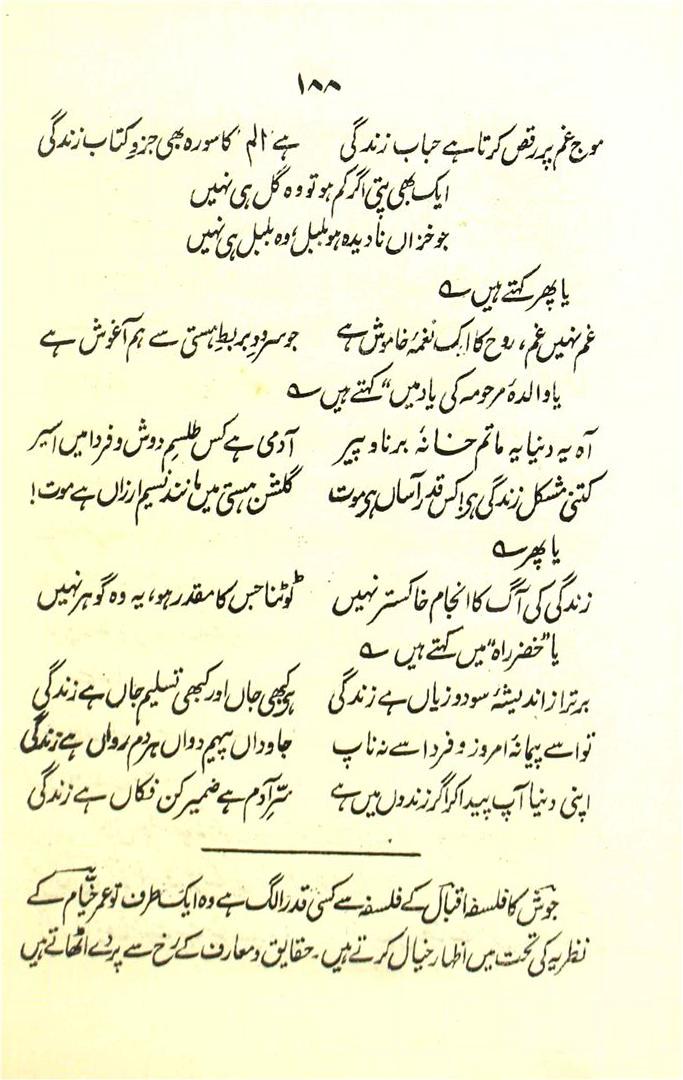 ۱۸۸
موج غم پر رقص کرتا ہے حباب زندگی ہے 'الم' کا سورہ بھی جزوِ کتاب زندگی
ایک بھی پتی اگر کم ہو تو وہ گل ہی نہیں
جو خزاں نادیدہ ہو بلبل، وہ بلبل ہی نہیں
یا پھر کہتے ہیں ؎
غم نہیں غم، روح کا اک نغمۂ خاموش ہے جو سرودِ بربطِ ہستی سے ہم آغوش ہے
یا والدۂ مرحومہ کی یاد میں" کہتے ہیں ؎
آہ یہ دنیا یہ ماتم خانۂ برنا و پیر آدمی ہے کس طلسمِ دوش و فردا میں اسیر
کتنی مشکل زندگی ہے! کس قدر آساں ہے موت گلشن ہستی میں مانند نسیم ارزاں ہے موت!
یا پھر ؎
زندگی کی آگ کا انجام خاکستر نہیں ٹوٹنا جس کا مقدر ہو، یہ وہ گوہر نہیں
یا "خضر راہ" میں کہتے ہیں ؎
برتر از اندیشۂ سود و زیاں ہے زندگی ہے کبھی جاں اور کبھی تسلیم جاں ہے زندگی
تو اسے پیمانۂ امروز و فردا سے نہ ناپ جاوداں پیہم دواں ہر دم رواں ہے زندگی
اپنی دنیا آپ پیدا کر اگر زندوں میں ہے سرِّ آدم ہے ضمیر کن فکاں ہے زندگی
جوشؔ کا فلسفہ اقبالؔ کے فلسفہ سے کسی قدر الگ ہے وہ ایک طرف تو عمر خیّام کے
نظریہ کی تحت میں اظہار خیال کرتے ہیں۔ حقایق و معارف کے رخ سے پردے اٹھاتے ہیں